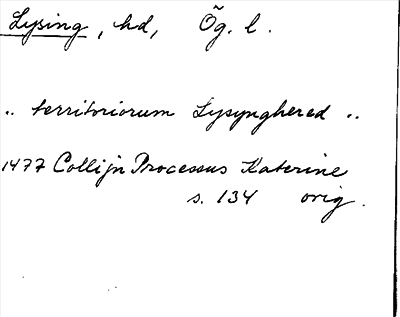 Lysing, hd, Ög. l.
.. territoriorum Lysynghered ..
1477 Collijn Processus Katerine
s. 134 orig.